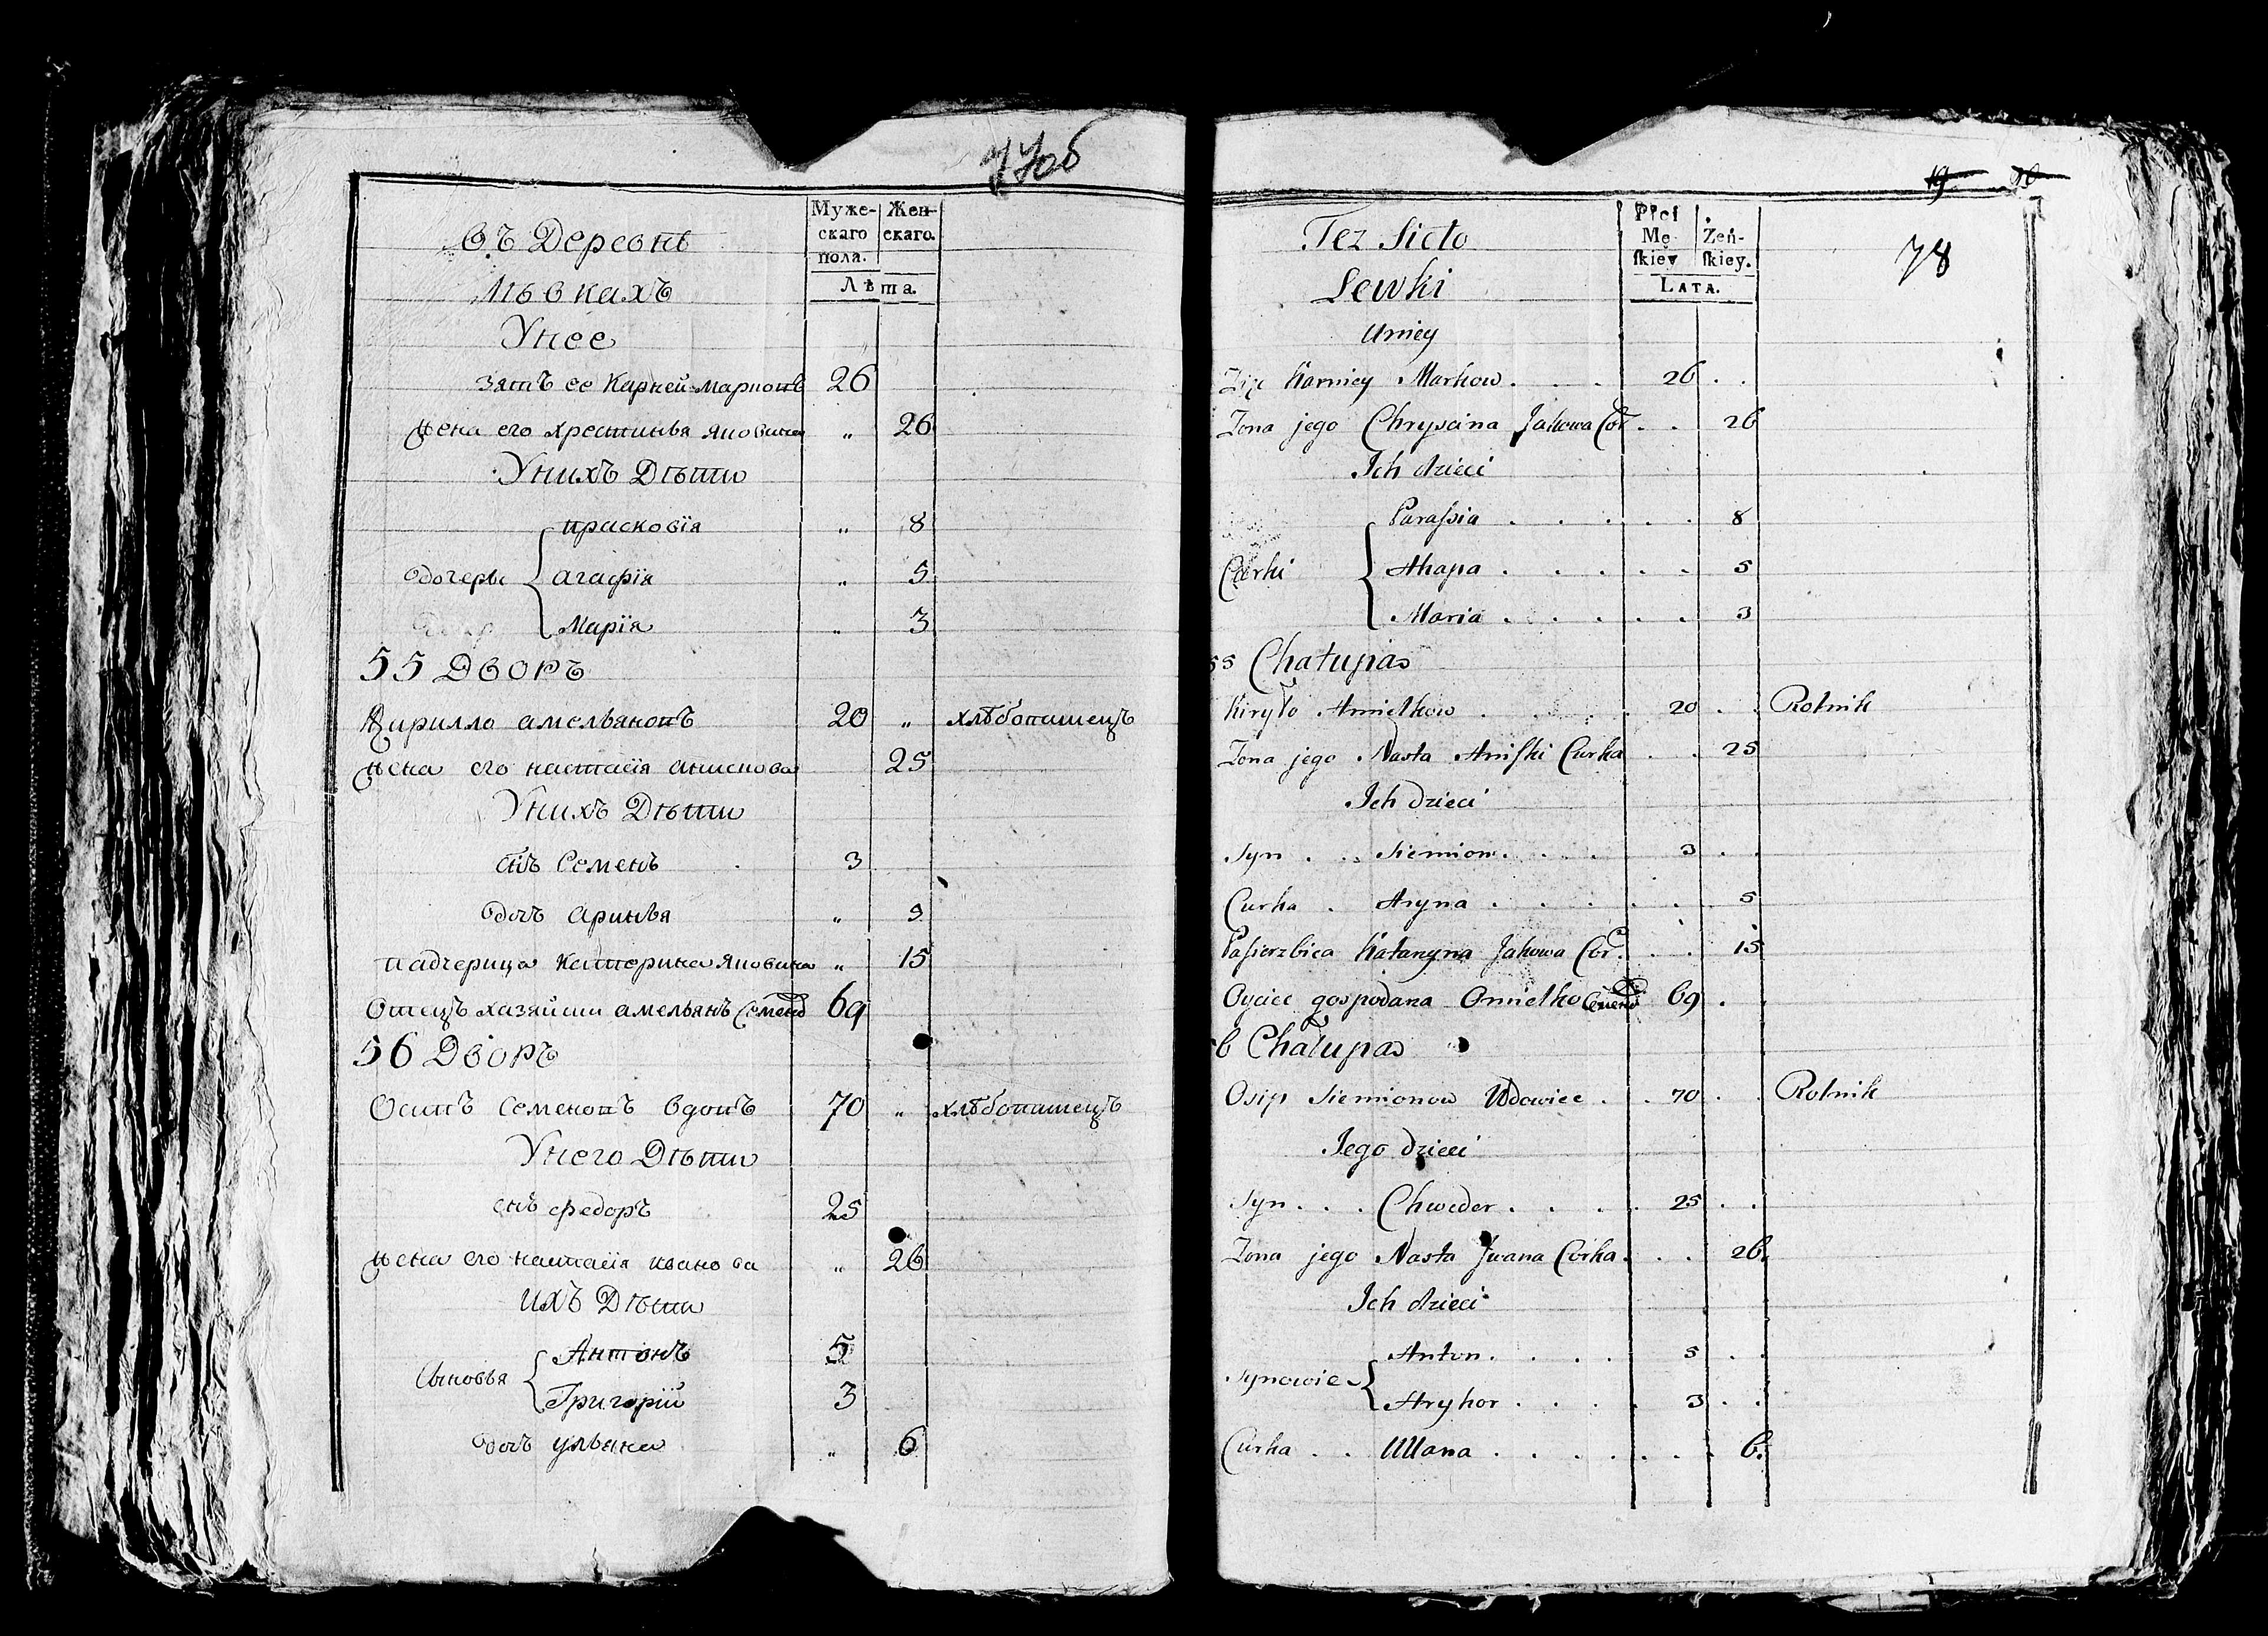 77об
Муже-скаго пола. Жен-скаго.
Лѣта.
въ Деревнѣ
Лѣвкахъ
Унее
зять ее Карней марковъ 26
жена его хрестинья яковлева „ 26
Унихъ Дѣти
прасковїя „ 8
дочерьи агафїя „ 5
Марїя „ 3
55 Дворъ
Кирилло амельяновъ 20 „ хлѣбопашецъ
жена его настасїя анискова 25
Унихъ Дѣти
снъ Семенъ 3
дочь аринья „ 5
падчерица катерина яковлева „ 15
Отецъ хазяйши амельянъ Семенов 69
56 Дворъ
Осипъ Семеновъ вдовъ 70 „ хлѣбопашецъ
Унего Дѣти
снъ федоръ 25
жена его настасїя иванова „ 26
ихъ Дѣти
Сыновья Антонъ 5
Григорїй 3
дочь ульяна „ 6
78
Płci Męſkiey Żeń-ſkiey.
LATA.
Tez Sieło
Lewki
Uniey
Zię Karniey Markow . . . 26 . .
Zona jego Chryscina Jakowa Cor . . 26
Ich dzieci
Paraſsia . . . . . 8
Curki Ahapa . . . . . 5
Maria . . . . . 3
55 Chałupa
Kiryło Amielkow . . . . 20 . . Rolnik
Zona jego Nasta Aniſki Curka . . 25
Ich dzieci
Syn . . Siemion . . . . 3 . .
Curka . Aryna . . . . . . 5
Paſierzbica Katarzyna Jakowa Cor. . . 15
Oyciec gospodarza Omielko Семенов 69 . .
56 Chałupa
Osip Siemionow Wdowiec . . 70 . . Rolnik
Jego dzieci
Syn . . . Chweder . . . . 25 . .
Zona jego Nasta Jwana Córka . . . 26.
Ich dzieci
Synowie Anton . . . . 5 . .
Hryhor . . . . 3 . .
Curka . . Ullana . . . . . . . 6.